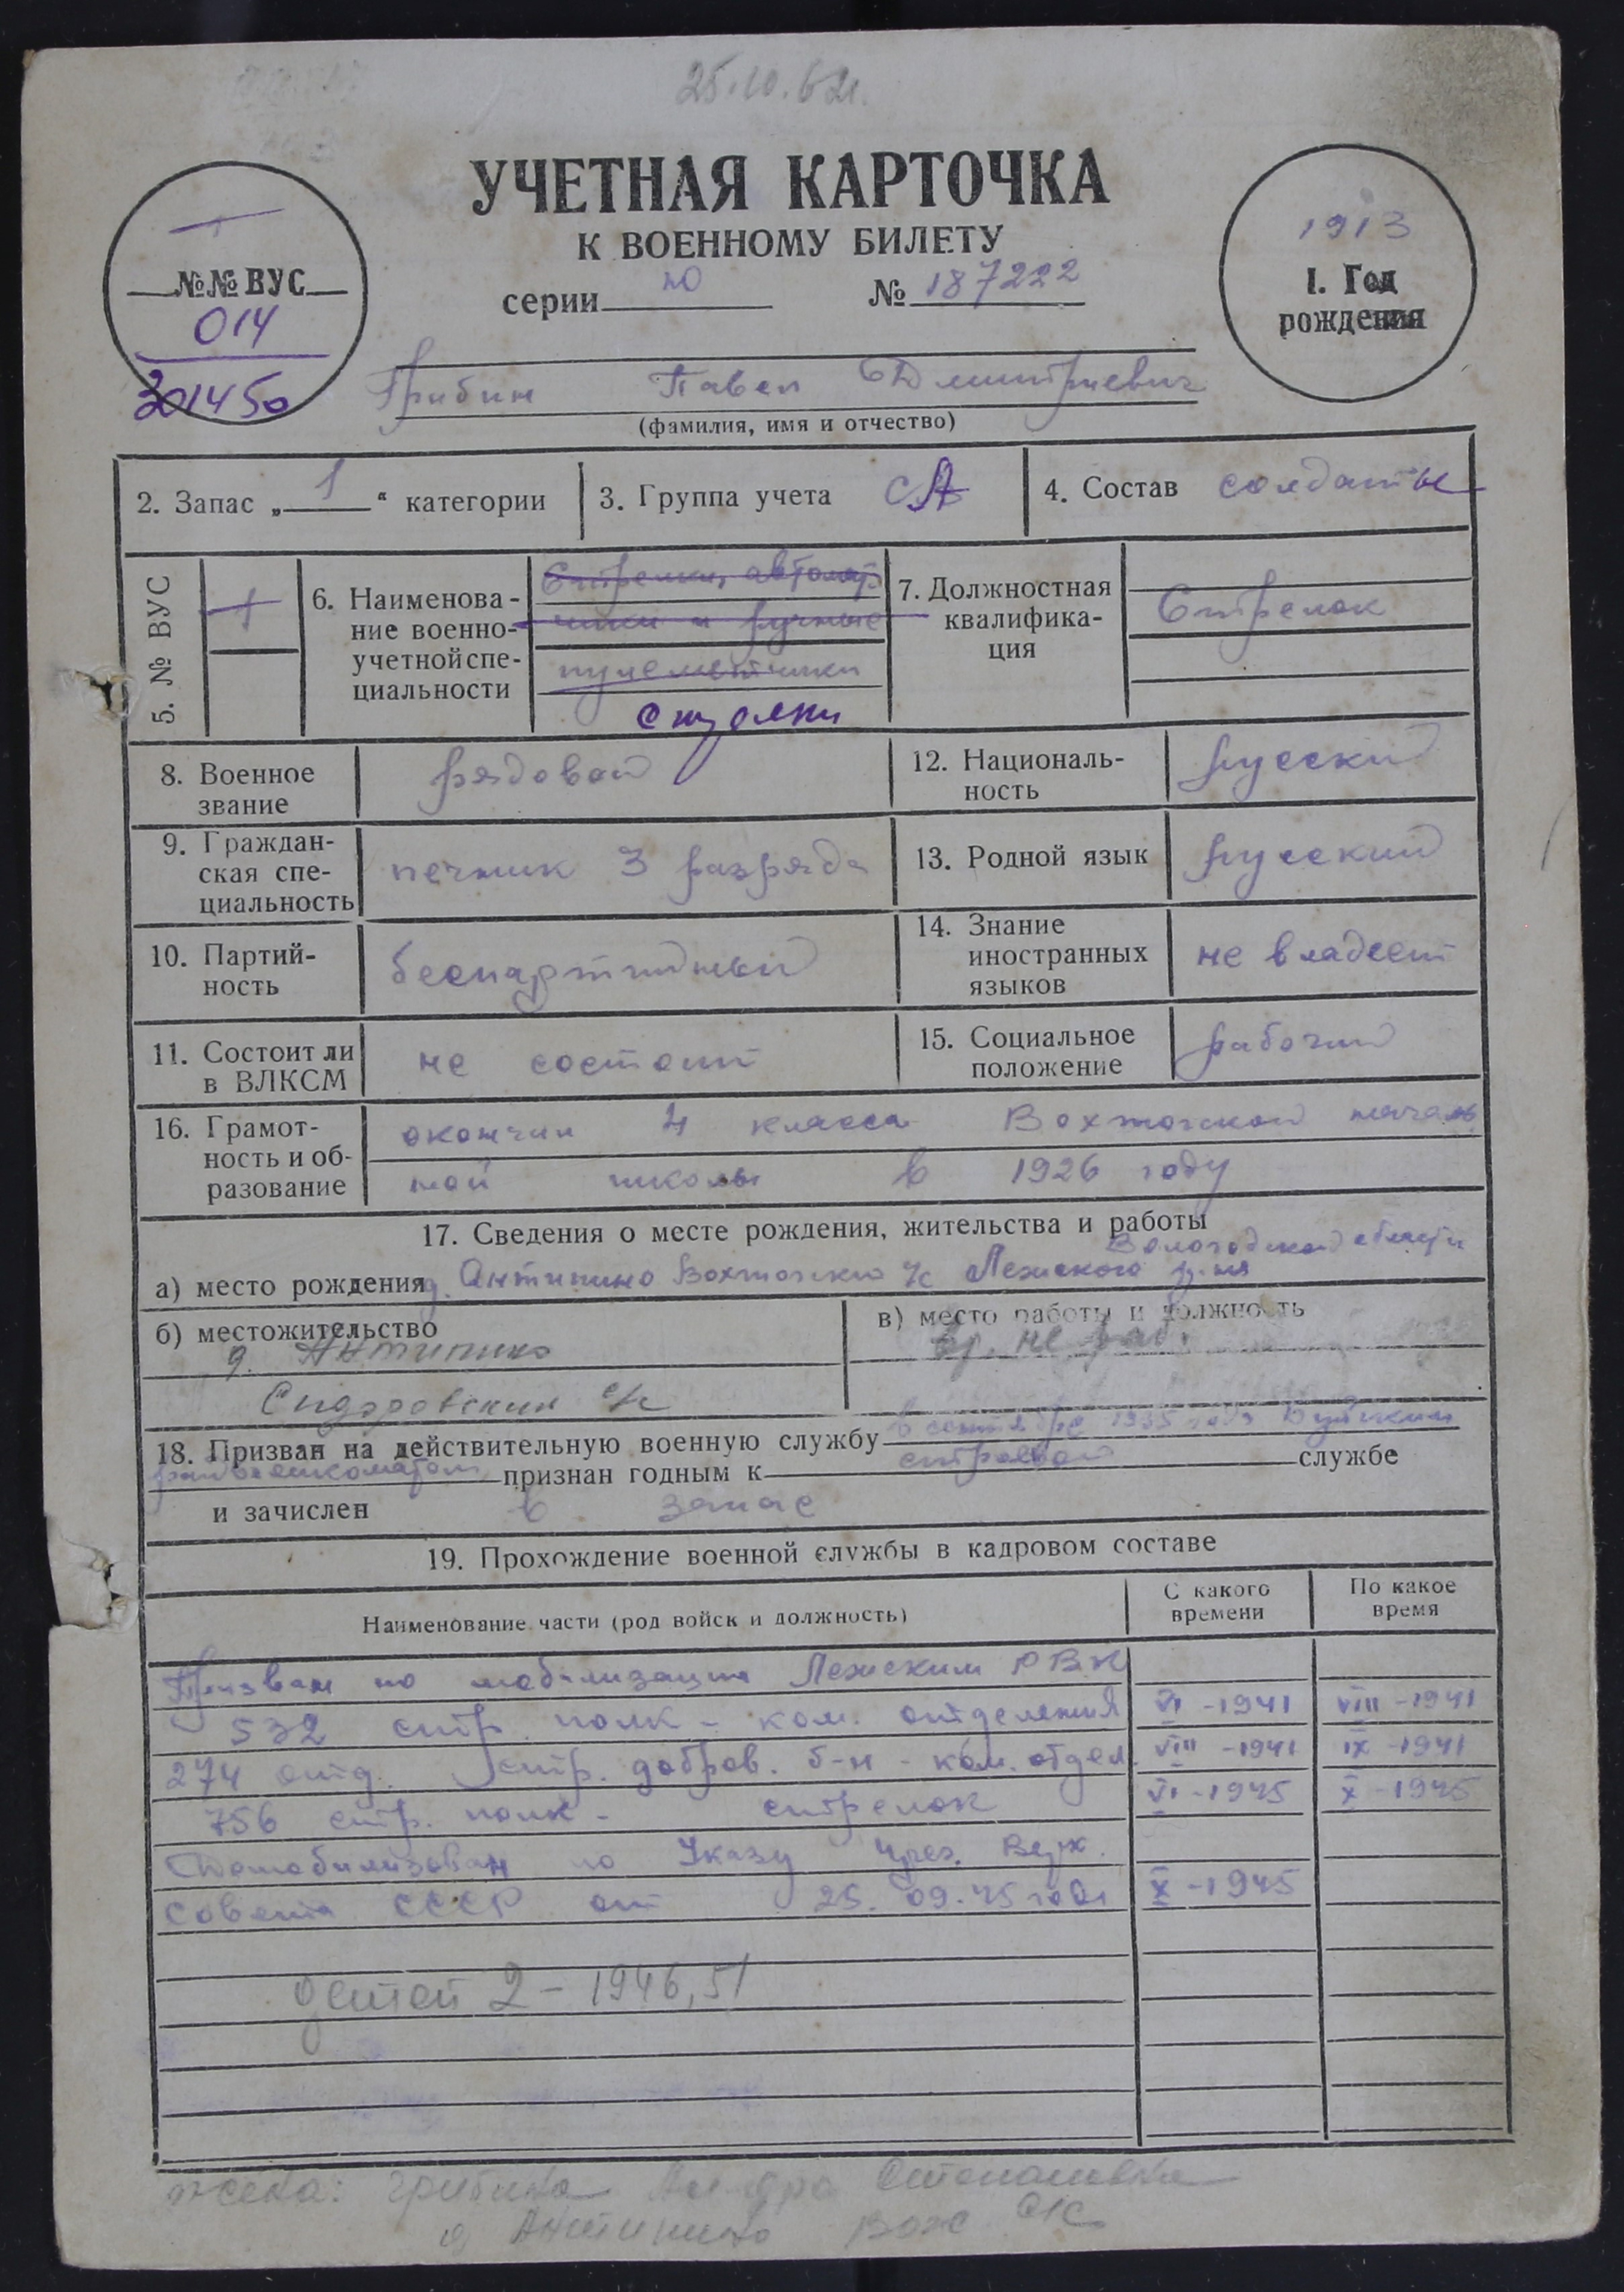 25.10.62г.
УЧЕТНАЯ КАРТОЧКА
К ВОЕННОМУ БИЛЕТУ
серии Ю № 187222
№№ ВУС
014
301450
1913
1. Год
рождения
Грибин Павел Дмитриевич
(фамилия, имя и отчество)
2. Запас „1“ категории
3. Группа учета СА
4. Состав солдаты
5. № ВУС
1
6. Наименова-
ние военно-
учетной спе-
циальности
Стрелки, автомат-
чики и ручные
пулеметчики
стрелки
7. Должностная
квалифика-
ция
Стрелок
8. Военное
звание
рядовой
12. Националь-
ность
русский
9. Граждан-
ская спе-
циальность
печник 3 разряда
13. Родной язык
русский
10. Партий-
ность
беспартийный
14. Знание
иностранных
языков
не владеет
11. Состоит ли
в ВЛКСМ
не состоит
15. Социальное
положение
рабочий
16. Грамот-
ность и об-
разование
окончил 4 класса Вохтожской началь
ной школы в 1926 году
17. Сведения о месте рождения, жительства и работы
Вологодской области
а) место рождения д. Антипино Вохтожского с/с Лежского р-на
б) местожительство
д. Антипино
Сидоровский с/с
в) место работы и должность
вр. не раб.
18. Призван на действительную военную службу в сентябре 1935 года
райвоенкоматом признан годным к строевой службе
и зачислен в запас
19. Прохождение военной службы в кадровом составе
Наименование части (род войск и должность)
С какого
времени
По какое
время
Призван по мобилизации Лежским РВК
532 стр. полк - ком. отделения VI -1941 VIII -1941
274 отд. стр. добров. б-н - ком. отдел. VIII -1941 IX -1941
756 стр. полк - стрелок VI -1945 X -1945
Демобилизован по Указу През. Верх.
Совета СССР от 25.09.45 года X -1945
детей 2 - 1946, 51
жена: Грибина Степановна
д Антипино Вож с/с